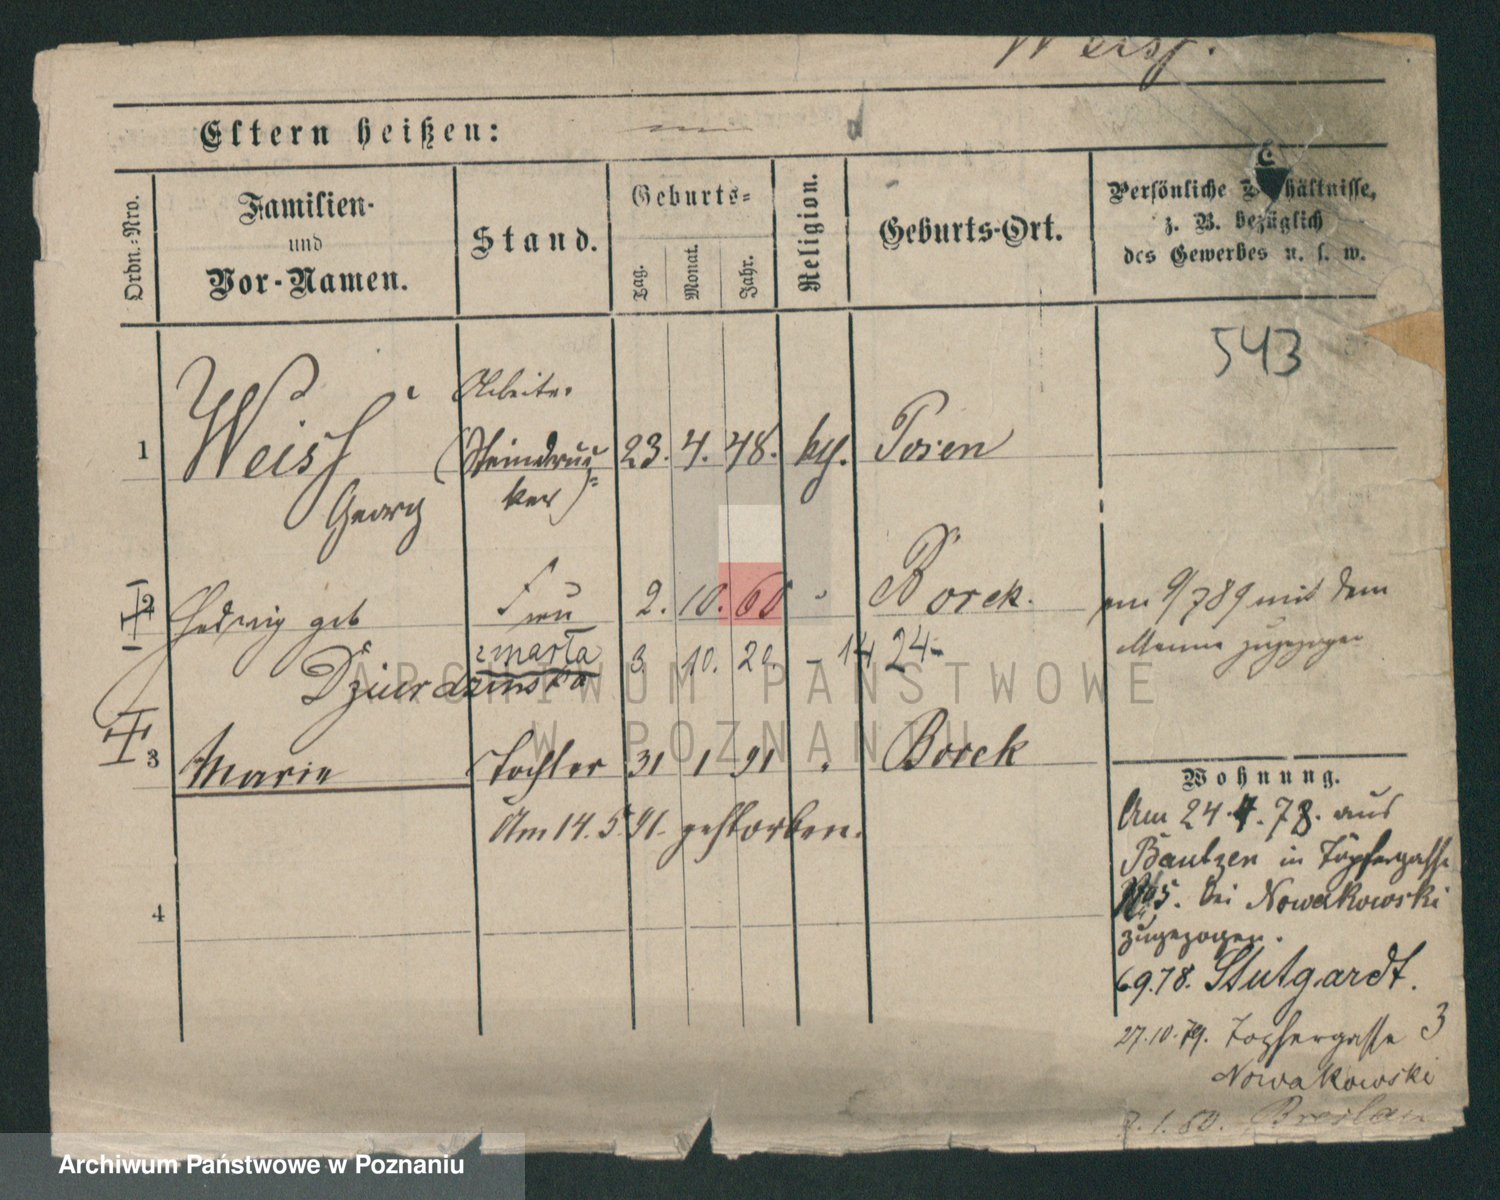 Weisß.
Eltern heißen:
Ordn.-Nro.
Familien-
und
Vor-Namen.
Stand.
Geburts-
Tag.
Monat.
Jahr.
Religion.
Geburts-Ort.
Persönliche Verhältnisse,
z. B. bezüglich
des Gewerbes u. s. w.
543
Arbeiter
1 Weisß (Steindruc- 23. 4. 48. kth. Posen
Georg ker)
2 Hedwig geb Frau 2. 10. 60 Borek.
am 9/7 89 mit dem
Manne zugezogen
zmarła 3 10. 20. - 14 24-
Dzierdzinska
3 Marie Tochter 31 1 91 Borek
Am 14. 5. 91. gestorben.
4
Wohnung.
Am 24. 4. 78. aus
Bautzen in Töpfergasse
No 5. bei Nowakowski
zugezogen.
6 9. 78. Stutgardt.
27. 10. 79. Topfergasse 3
Nowakowski
7. 1. 80. Breslau
ARCHIWUM PAŃSTWOWE
W POZNANIU
Archiwum Państwowe w Poznaniu